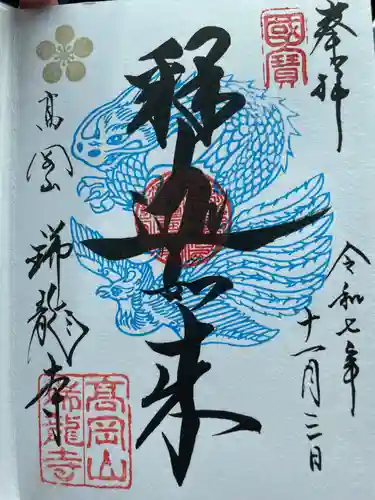 奉拝
國寶
令和七年
十一月三日
釋迦如来
高岡山
瑞龍寺
高岡山
瑞龍寺